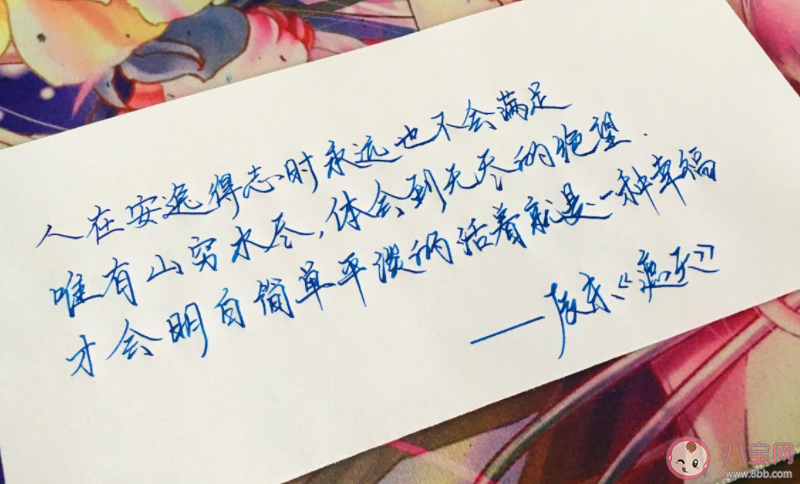 人在安逸得志时永远也不会满足
唯有山穷水尽,体会到无尽的绝望.
才会明白简单平淡的活着就是一种幸福
——辰东《遮天》
八宝网
www.8bb.com